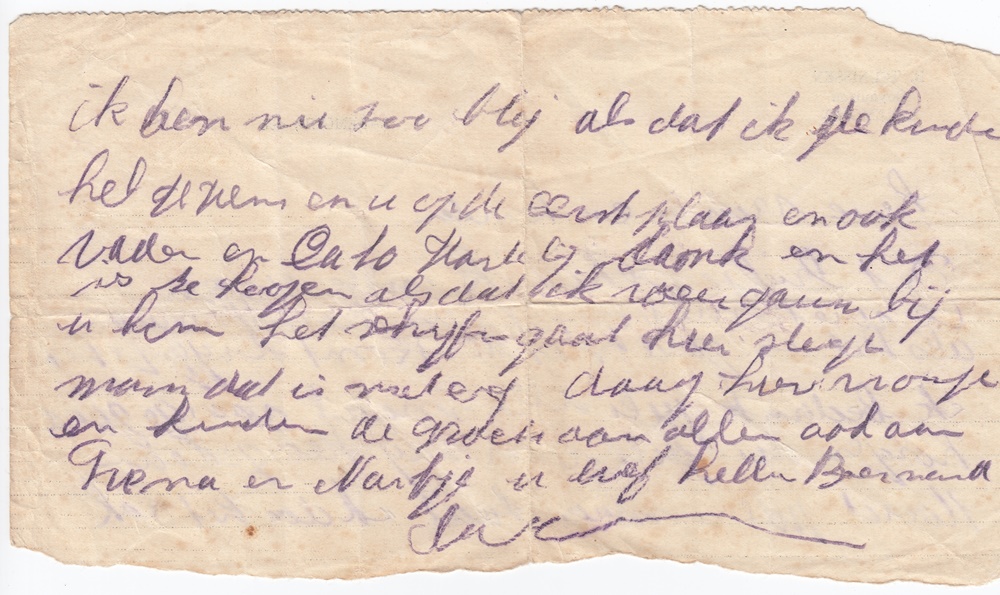 ik ben nu zoo blij als dat ik de kinde
het en u op de eerst plaas en ook
Vader en Cato Hart daank en het
is te hoopen als dat ik weer gauw bij
u ben het schrijfn gaat hier slegt
maar dat is niet erg daag hier vrouwje
en kinderen de groeten aan allen ook aan
en Martje u lief Bernard